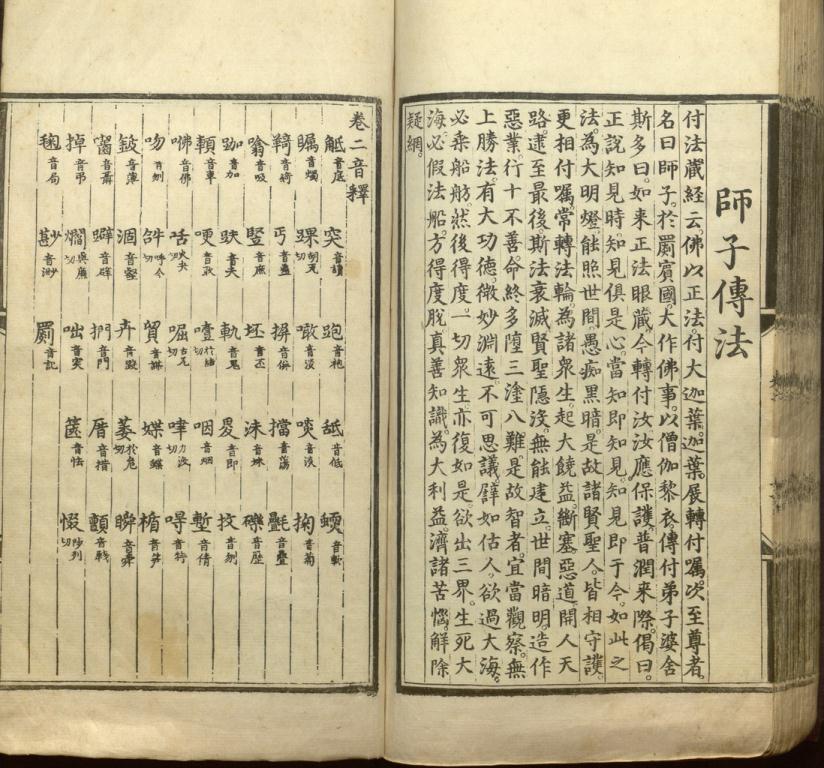 師子傳法
付法藏經云。佛以正法付大迦葉。迦葉展轉付囑。次至尊者。
名曰師子。於罽賓國。大作佛事。以僧伽黎衣。傳付弟子婆舍
斯多曰。如來正法眼藏。今轉付汝。汝應保護。普潤来際。偈曰。
正說知見時。知見俱是心。當知即知見。知見即于今。如此之
法。為大明燈。能照世間。愚痴黑暗。是故諸賢聖人。皆相守護。
更相付囑。常轉法輪。為諸衆生。起大饒益。斷塞惡道。開人天
路。逮至最後。斯法衰滅。賢聖隱沒。無能建立。世間暗明。造作
惡業。行十不善。命終多墮三塗八難。是故智者。宜當觀察。無
上勝法。有大功德。微妙淵遠。不可思議。譬如估人。欲過大海。
必乘船舫。然後得度。一切衆生。亦復如是。欲出三界。生死大
海。必假法船。方得度脫。真善知識。為大利益。濟諸苦惱。解除
疑網。
卷二音釋
觝音底 突音讀 跑音袍 舐音低 蝡音軟
矚音燭 踝胡瓦切 噉音淡 啖音淡 掬音菊
䩭音倚 丐音蓋 摒音併 擋音蕩 㲲音疊
噏音吸 竪音庶 坯音丕 沬音妹 礫音歷
跏音加 趺音夫 軌音鬼 畟音即 扠音
頼音車 哽音 噎於結切 咽音烟 塹音倩
咈音佛 㖉 崛古兀切 嘩力波切 㖊
吻音刎 䶎呼今切 貿音茂 媟音蝶 楯音笋
鈸音薄 涸音壑 卉音毀 萎於危切 瞬音舜
囓音聶 躃音辟 捫音門 厝音措 顫音戰
掉音弔 爓與廉切 咄音突 篋音怯 惙陟列切
毱音局 尠音渺 罽音記